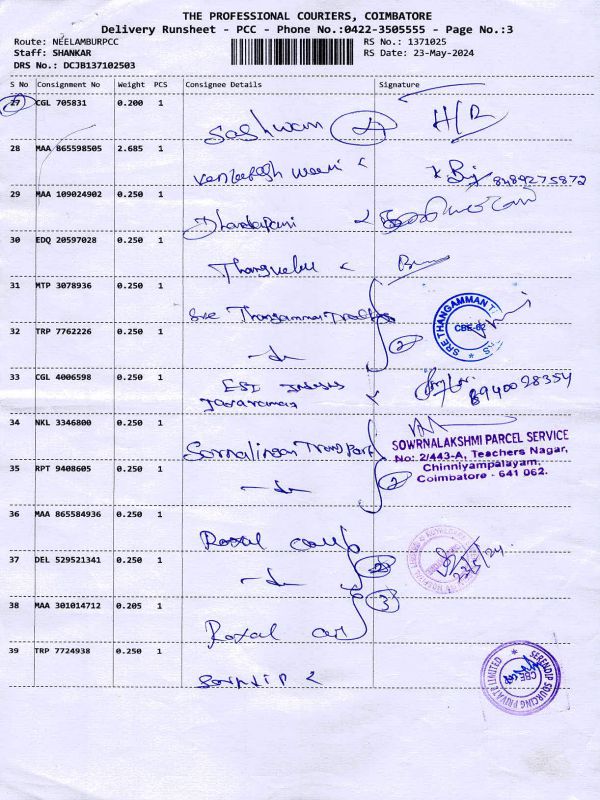 THE PROFESSIONAL COURIERS, COIMBATORE
Delivery Runsheet - PCC - Phone No.:0422-3505555 - Page No.:3
Route: NEELAMBURPCC RS No.: 1371025
Staff: SHANKAR RS Date: 23-May-2024
DRS No.: DCJB137102503
S No Consignment No Weight PCS Consignee Details Signature
27 CGL 705831 0.200 1
Sashwan 4 H/R
28 MAA 865598505 2.685 1
8489275872
29 MAA 109024902 0.250 1
Dhandapani
30 EDQ 20597028 0.250 1
Thangavelu
31 MTP 3078936 0.250 1
Sree Thangamman Traders
SRE THANGAMMAN
CBE-62
32 TRP 7762226 0.250 1
- do 2
33 CGL 4006598 0.250 1
ESI
Jayaraman 8940028354
34 NKL 3346800 0.250 1
Sornalingam Transport
SOWRNALAKSHMI PARCEL SERVICE
No: 2/443-A, Teachers Nagar,
Chinniyampalayam,
Coimbatore - 641 062.
35 RPT 9408605 0.250 1
- do 2
36 MAA 865584936 0.250 1
Roxal
37 DEL 529521341 0.250 1
- do
23/5/24
38 MAA 301014712 0.205 1
3
Roxal
39 TRP 7724938 0.250 1
SERENDIP SOURCING PRIVATE LIMITED
CBE